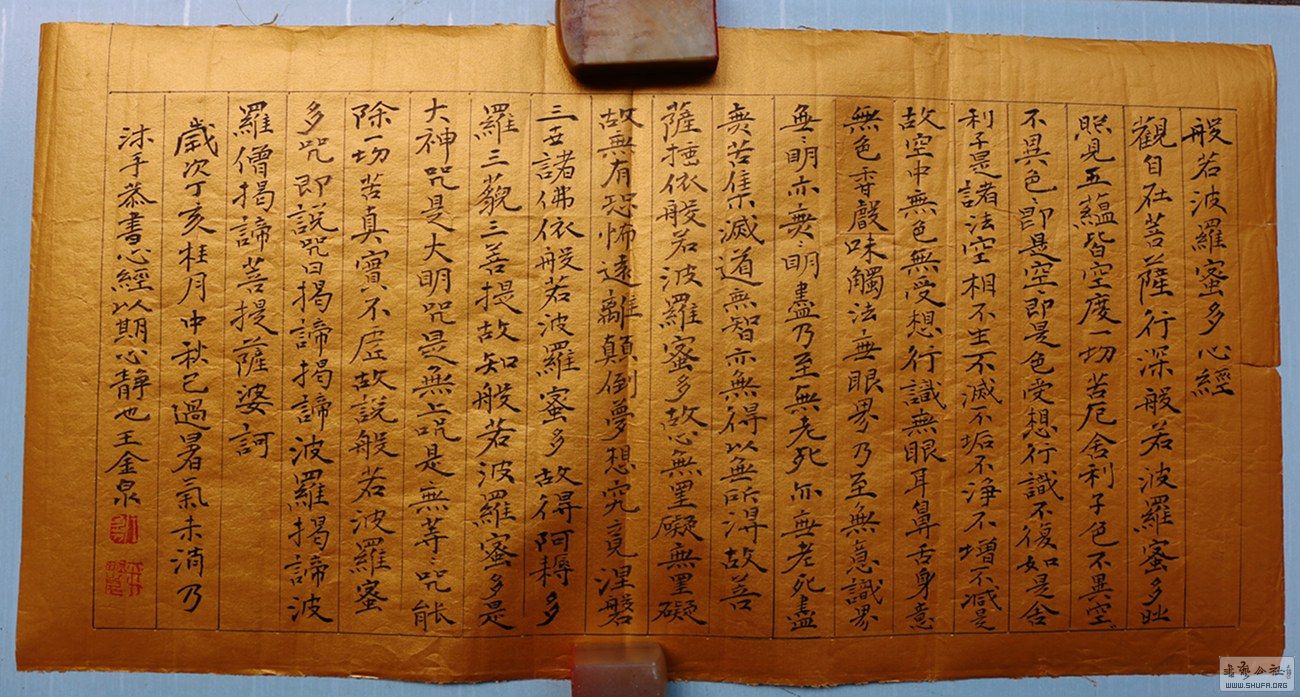 般若波羅蜜多心經
觀自在菩薩行深般若波羅蜜多時
照見五蘊皆空度一切苦厄舍利子色不異空〻
不異色〻即是空〻即是色受想行識不復如是舍
利子是諸法空相不生不滅不垢不淨不增不減是
故空中無色無受想行識無眼耳鼻舌身意
無色香聲味觸法無眼界乃至無意識界
無〻明亦無〻明盡乃至無老死亦無老死盡
無苦集滅道無智亦無得以無所得故菩
薩埵依般若波羅蜜多故心無罣礙無罣礙
故無有恐怖遠離顛倒夢想究竟涅槃
三世諸佛依般若波羅蜜多故得阿耨多
羅三藐三菩提故知般若波羅蜜多是
大神咒是大明咒是無上咒是無等〻咒能
除一切苦真實不虛故說般若波羅蜜
多咒即說咒曰揭諦揭諦波羅揭諦波
羅僧揭諦菩提薩婆訶
歲次丁亥桂月中秋已過暑氣未消乃
沐手恭書心經以期心靜也王金泉
WWW.SHUFA.ORG